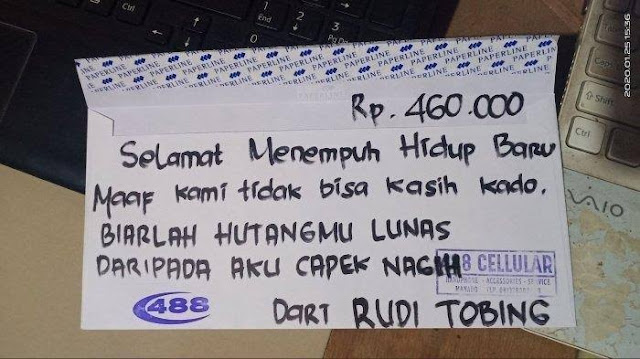 2020.01.25 15:36
PAPERLINE PAPERLINE PAPERLINE PAPERLINE PAPERLINE
Rp. 460.000
Selamat Menempuh Hidup Baru
Maaf kami tidak bisa kasih kado.
BIARLAH HUTANGMU LUNAS
DARIPADA AKU CAPEK NAGIH
8 CELLULAR
HANDPHONE - ACCESSORIES - SERVICE
488
DARI RUDI TOBING
Shift
Ctrl
VAIO